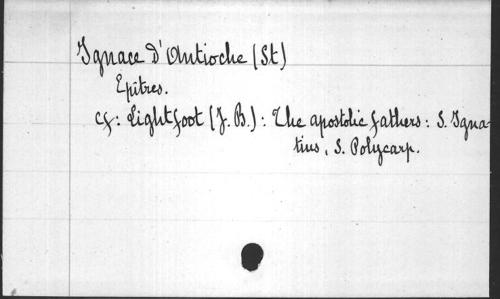 Ignace d'Antioche (St)
Epîtres.
Cf: Lightfoot (J. B.): The apostolic fathers: S. Igna-
tius, S. Polycarp.